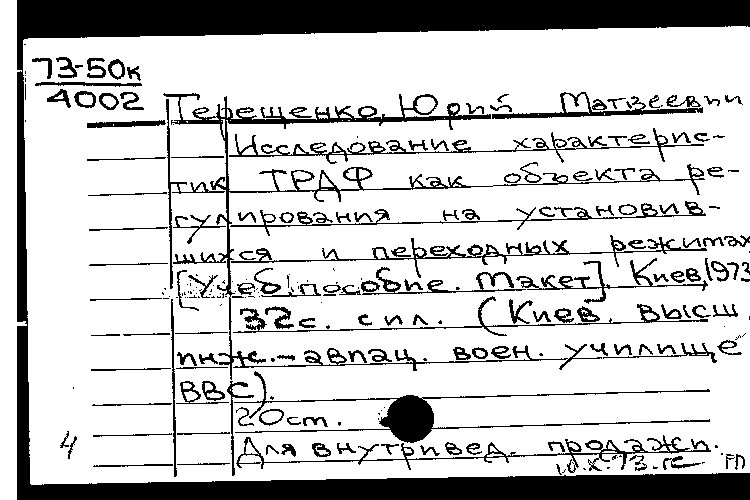 73-50к
4002
Терещенко, Юрий Матвеевич
Исследование характерис-
тик ТРДФ как объекта ре-
гулирования на установив-
шихся и переходных режимах
[Учеб. пособие. Макет]. Киев, 1973
32с. с ил. (Киев. высш.
инж.-авиац. воен. училище
ВВС).
20ст.
4 Для внутривед. продажи.
10.X.73.г РП